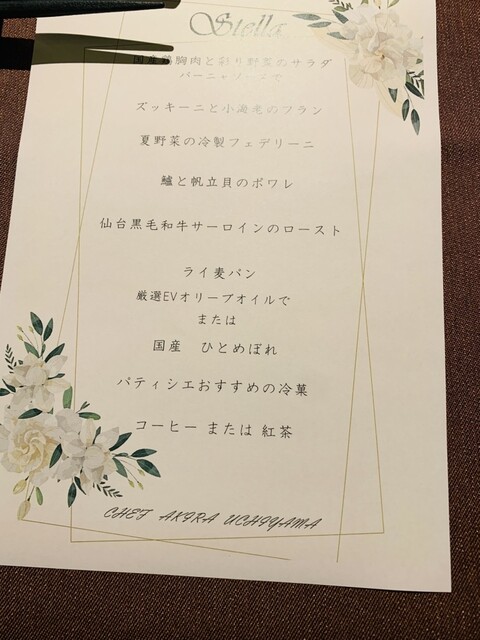 Stella
国産鶏胸肉と彩り野菜のサラダ
バーニャソースで
ズッキーニと小海老のフラン
夏野菜の冷製フェデリーニ
鱸と帆立貝のポワレ
仙台黒毛和牛サーロインのロースト
ライ麦パン
厳選EVオリーブオイルで
または
国産 ひとめぼれ
パティシエおすすめの冷菓
コーヒー または 紅茶
CHEF AKIRA UCHIYAMA